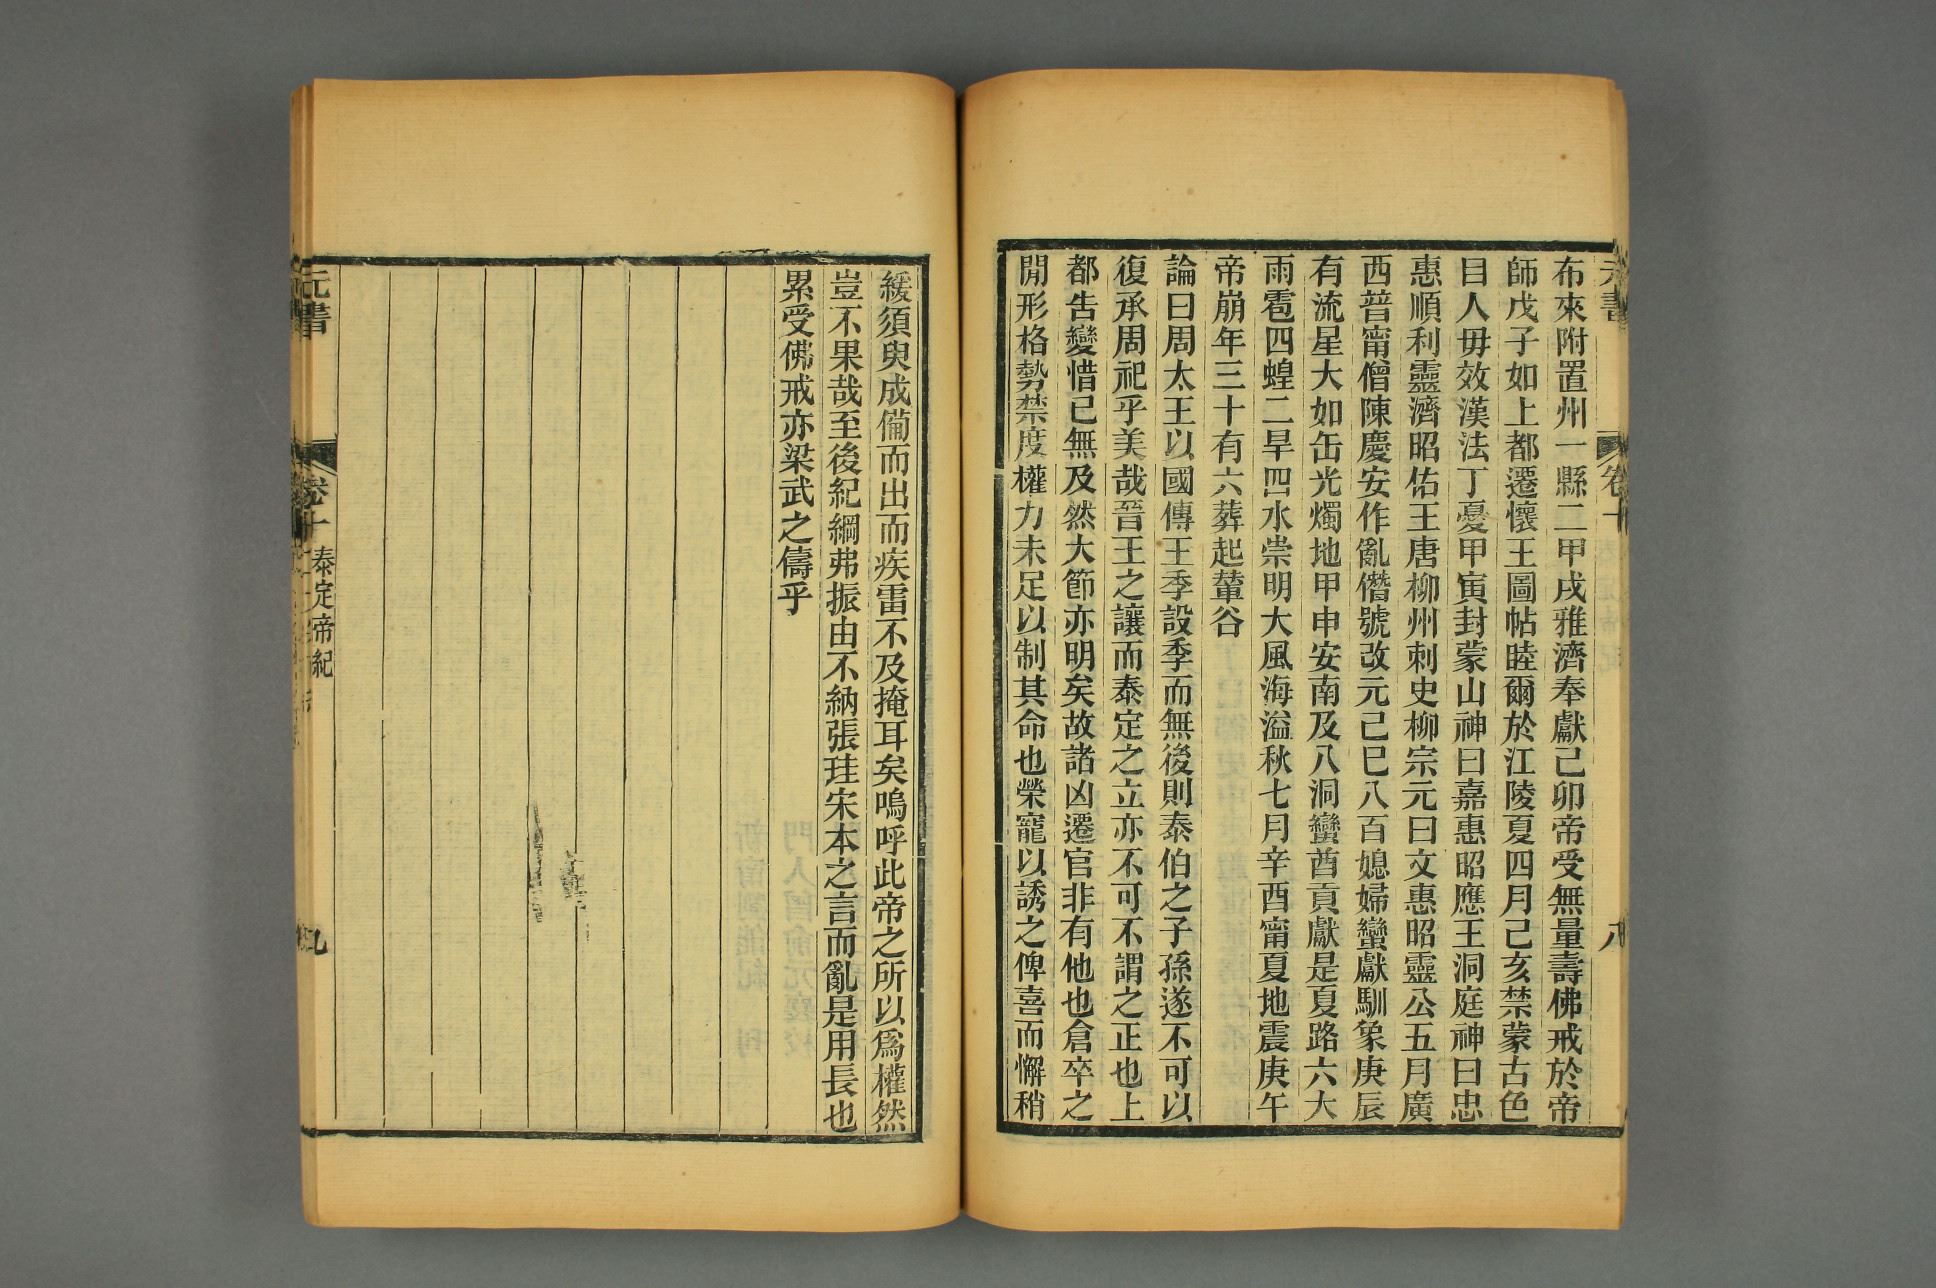 元書
卷十
八
布來附置州一縣二甲戌雅濟奉獻己卯帝受無量壽佛戒於帝
師戊子如上都遷懷王圖帖睦爾於江陵夏四月己亥禁蒙古色
目人毋效漢法丁憂甲寅封蒙山神曰嘉惠昭應王洞庭神曰忠
惠順利靈濟昭佑王唐柳州刺史柳宗元曰文惠昭靈公五月廣
西普甯僧陳慶安作亂僭號改元己巳八百媳婦蠻獻馴象庚辰
有流星大如缶光燭地甲申安南及八洞蠻酋貢獻是夏路六大
雨雹四蝗二旱四水崇明大風海溢秋七月辛酉甯夏地震庚午
帝崩年三十有六葬起輦谷
論曰周太王以國傳王季設季而無後則泰伯之子孫遂不可以
復承周祀乎美哉晉王之讓而泰定之立亦不可不謂之正也上
都告變惜已無及然大節亦明矣故諸凶遷官非有他也倉卒之
閒形格勢禁度權力未足以制其命也榮寵以誘之俾喜而懈稍
緩須臾成備而出而疾雷不及掩耳矣嗚呼此帝之所以爲權然
豈不果哉至後紀綱弗振由不納張珪宋本之言而亂是用長也
累受佛戒亦梁武之儔乎
元書
卷十
泰定帝紀
九